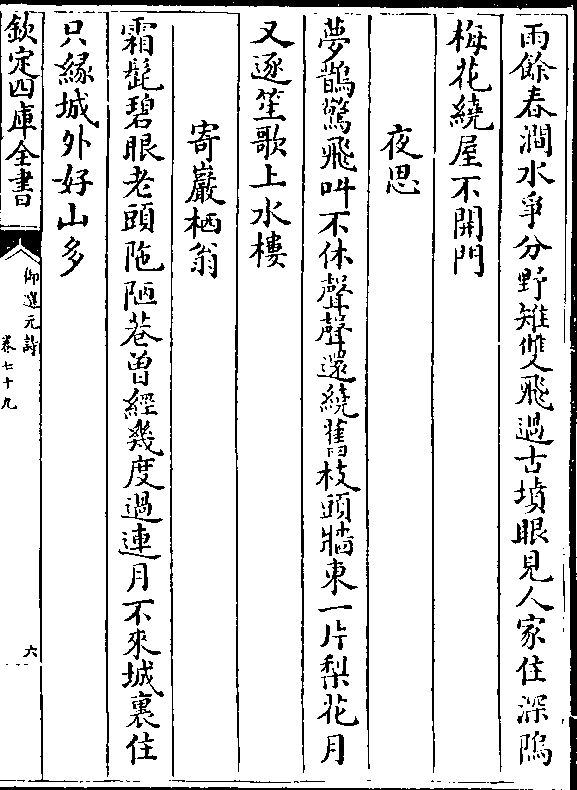 雨餘春澗水爭分野雉雙飛過古墳眼見人家住深隖
梅花繞屋不開門
夜思
夢鵲驚飛叫不休聲聲還繞舊枝頭牆東一片梨花月
又逐笙歌上水樓
寄巖栖翁
霜髭碧眼老頭陁陋巷曾經幾度過連月不來城裏住
只緣城外好山多
欽定四庫全書
御選元詩
卷七十九
六